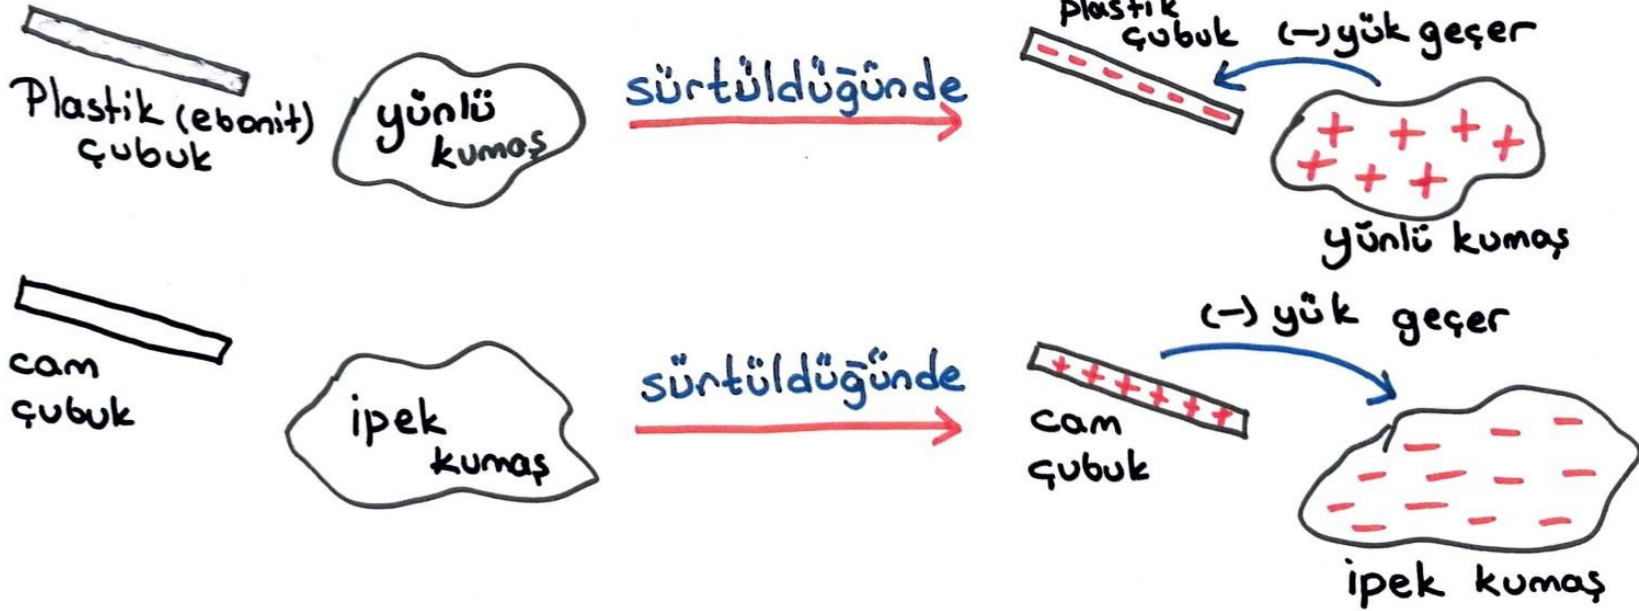 Plastik (ebonit)
çubuk
yünlü
kumaş
sürtüldüğünde
plastik
çubuk
(-) yük geçer
yünlü kumaş
cam
çubuk
ipek
kumaş
sürtüldüğünde
(-) yük geçer
cam
çubuk
ipek kumaş